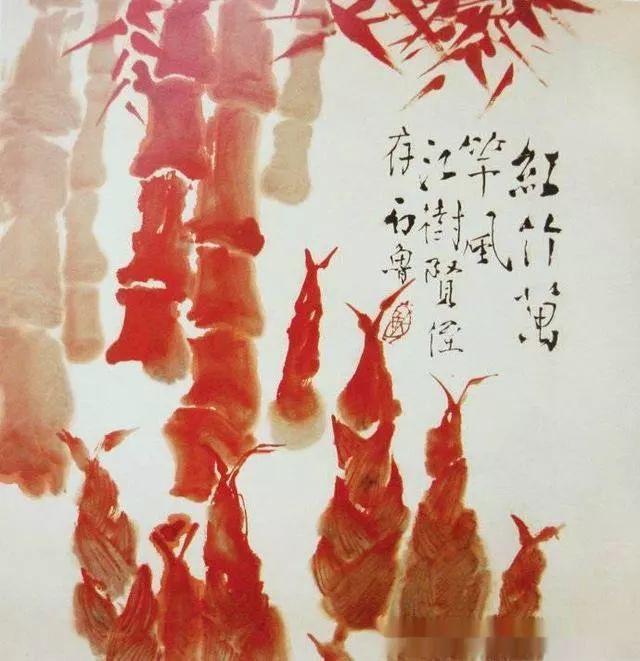 紅竹萬
竿風
江樹賢侄
存 石魯